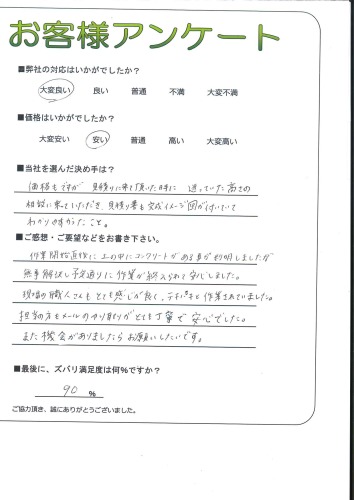 お客様アンケート
■弊社の対応はいかがでしたか?
大変良い 良い 普通 不満 大変不満
■価格はいかがでしたか?
大変安い 安い 普通 高い 大変高い
■当社を選んだ決め手は?
価格もですが 見積りに来て頂いた時に 迷っていた高さの
相談に乗っていただき 見積り書も完成イメージ図が付いていて
わかりやすかったこと。
■ご感想・ご要望などをお書き下さい。
作業開始直後に土の中にコンクリートがある事が判明しましたが
無事解決し予定通りに作業が終えられて安心しました。
現場の職人さんもとても感じが良く、テキパキと作業されていました。
担当の方もメールのやり取りがとても丁寧で安心でした。
また機会がありましたらお願いしたいです。
■最後に、ズバリ満足度は何%ですか?
90 %
ご協力頂き、誠にありがとうございました。